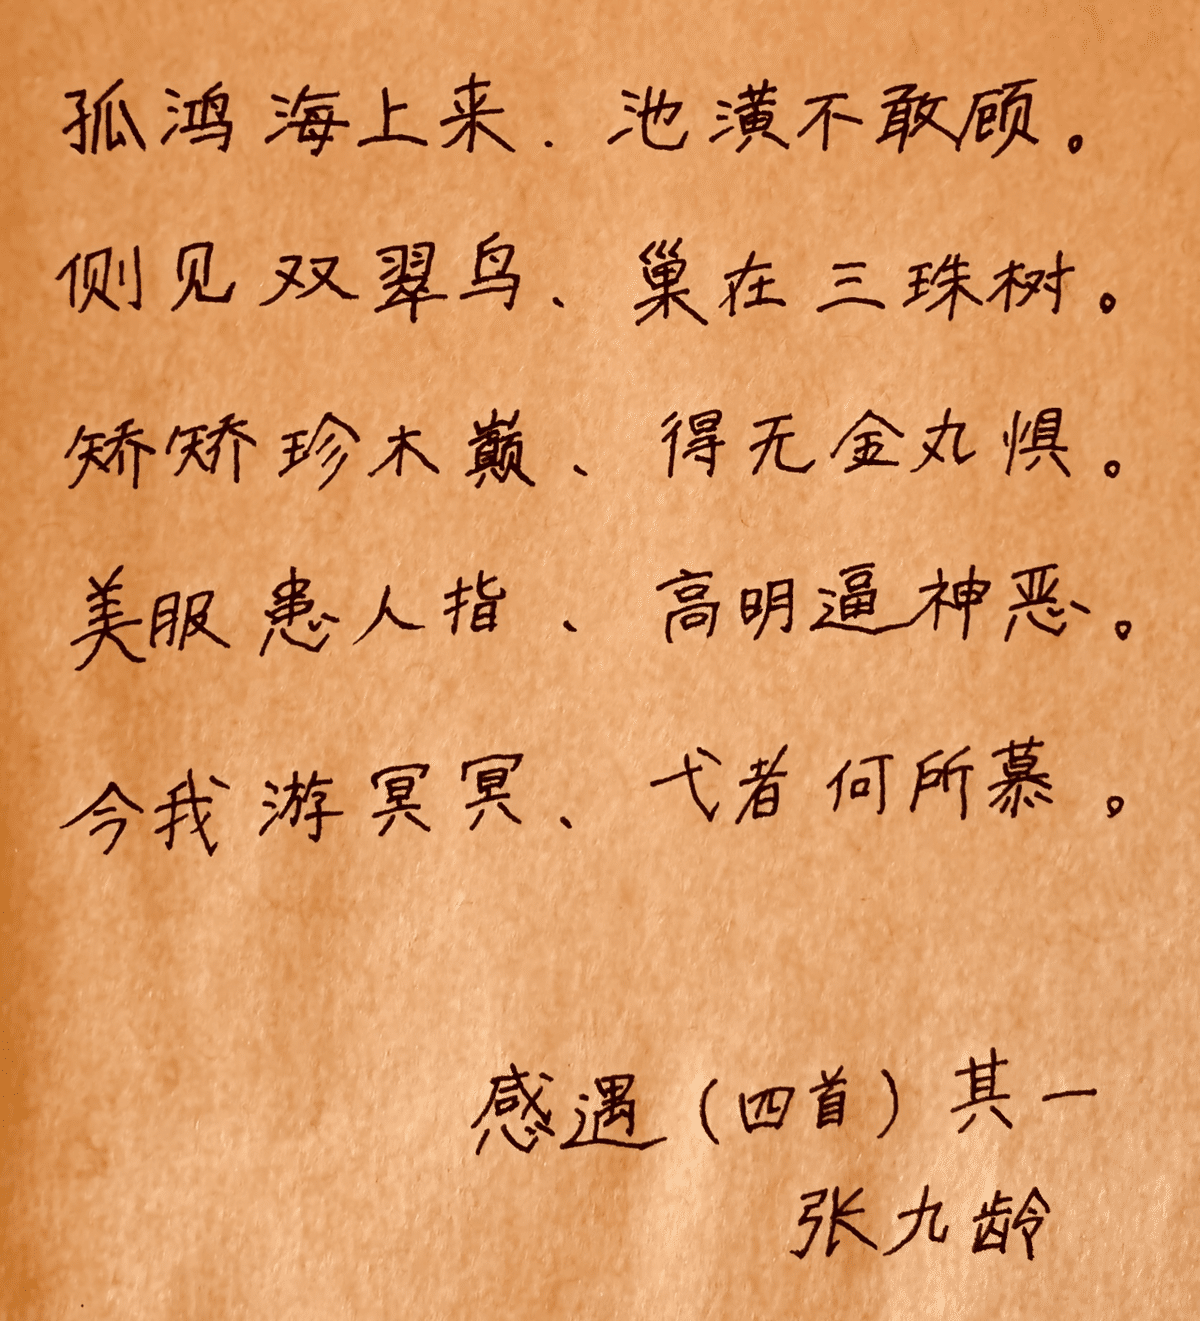 孤鸿海上来、池潢不敢顾。
侧见双翠鸟、巢在三珠树。
矫矫珍木巅、得无金丸惧。
美服患人指、高明逼神恶。
今我游冥冥、弋者何所慕。
感遇（四首）其一
张九龄